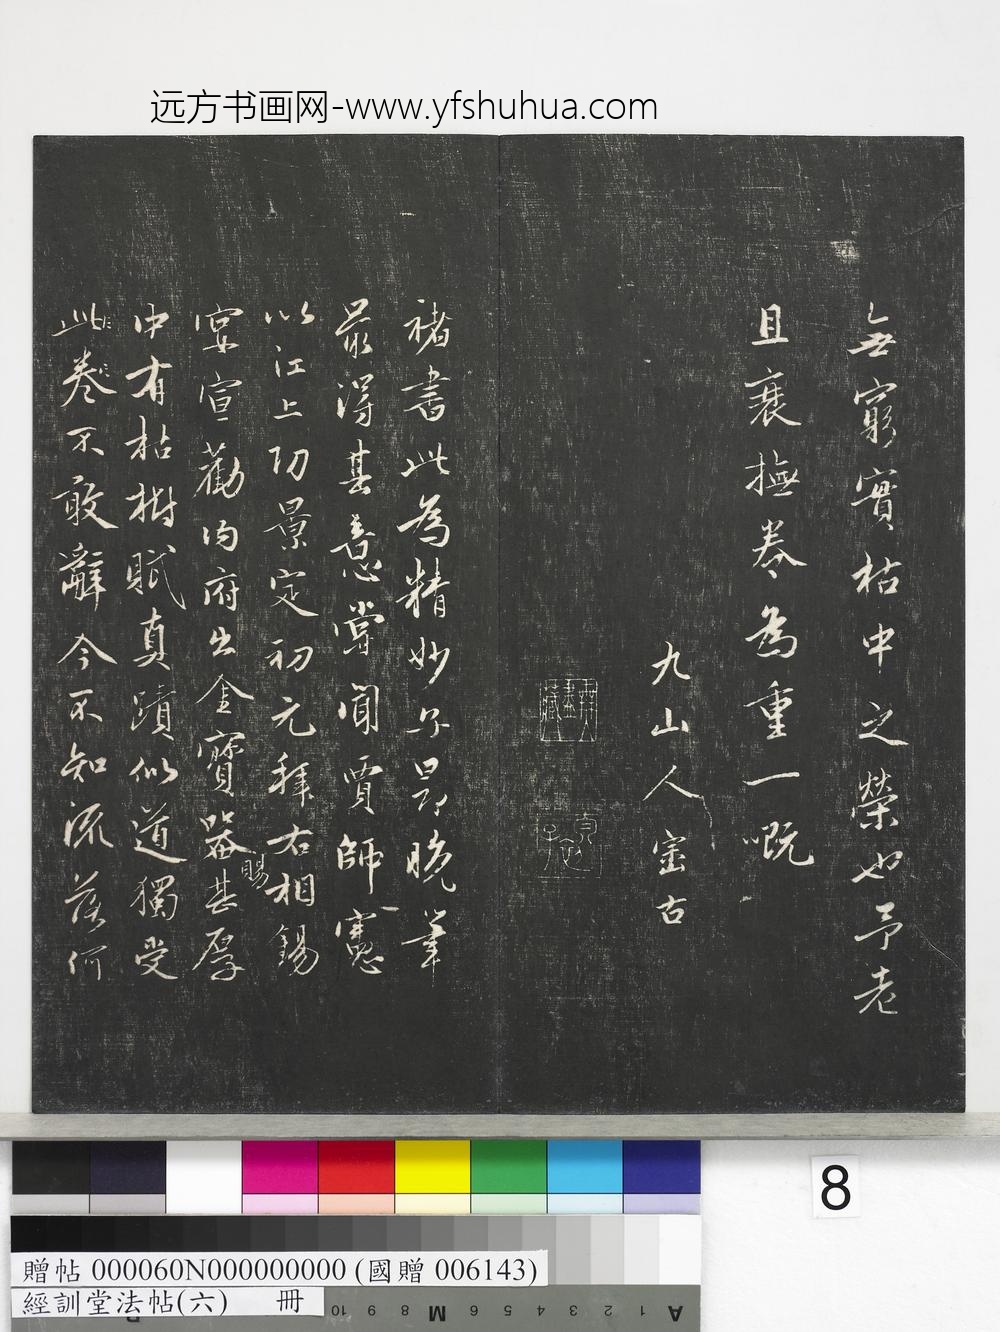 远方书画网-www.yfshuhua.com
無窮實枯中之榮也予老
且衰撫卷為重一嘅
九山人宓古
褚書此為精妙子昂晚筆
最得其意嘗聞賈師憲
以江上功景定初元拜右相錫
宴宣勸內府出金寶器甚厚
賜
中有枯樹賦真蹟似道獨受
此卷不敢辭今不知流落何
8
贈帖 000060N000000000 (國贈 006143)
經訓堂法帖(六) 冊
10 9 8 M 6 5 4 3 2 1 A